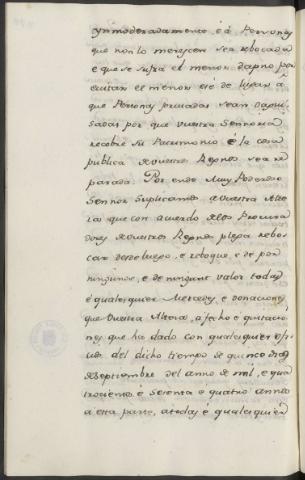 ynmoderadamente, é á Personas
que non lo merescen sea rebocada
é que se sufra el menor dapno por
evitar el menor é
que Personas privadas sean
por que Vuestra Sennoria
recobre su Patrimonio é la cosa
publica de vuestros Regnos sea re
parada. Por ende Muy Poderoso
Sennor suplicamos a Vuestra Alte
za que con acuerdo de los Procura
dores de vuestros Regnos plega rebo
car desde luego, é reboque, é dé por
ningunos, é de ningunt valor todas
é qualesquier Mercedes, é donaciones
que Vuestra Alteza, a fecho é quitacio
nes, que ha dado con qualesquier
del dicho tiempo de quince dias
de Septiembre del anno de mil, é qua
trocientos é sesenta é quatro annos
a esta parte, a todas é qualesquier